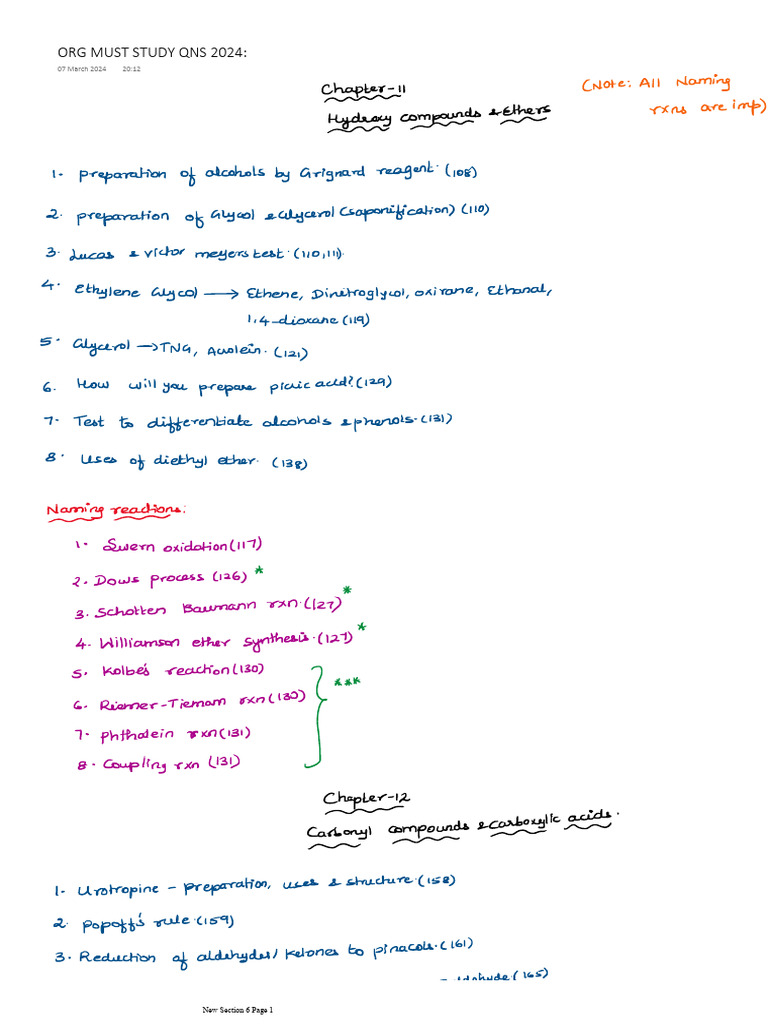 ORG MUST STUDY QNS 2024:
07 March 2024 20:12
Chapter-11
(Note: All Naming
rxns are imp)
Hydroxy compounds & Ethers
1. preparation of alcohols by Grignard reagent. (108)
2. preparation of Glycol & Glycerol (saponification) (110)
3. Lucas & Victor meyers test. (110,111).
4. Ethylene Glycol → Ethene, Dinitroglycol, oxirane, Ethanal,
1,4-dioxane (119)
5. Glycerol → TNG, Acrolein. (121)
6. How will you prepare picric acid? (129)
7. Test to differentiate alcohols & phenols. (131)
8. Uses of diethyl ether. (138)
Naming reactions:
1. Swern oxidation (117)
2. Dows process (126) *
3. Schotten Baumann rxn. (127) *
4. Williamson ether synthesis. (127) *
5. Kolbe's reaction (130)
***
6. Riemer-Tiemann rxn (130)
7. phthalein rxn (131)
8. Coupling rxn (131)
Chapter-12
Carbonyl compounds & carboxylic acids.
1. Urotropine - preparation, uses & structure. (158)
2. popoff's rule. (159)
3. Reduction of aldehydes/ketones to pinacols. (161)
(165)
New Section 6 Page 1